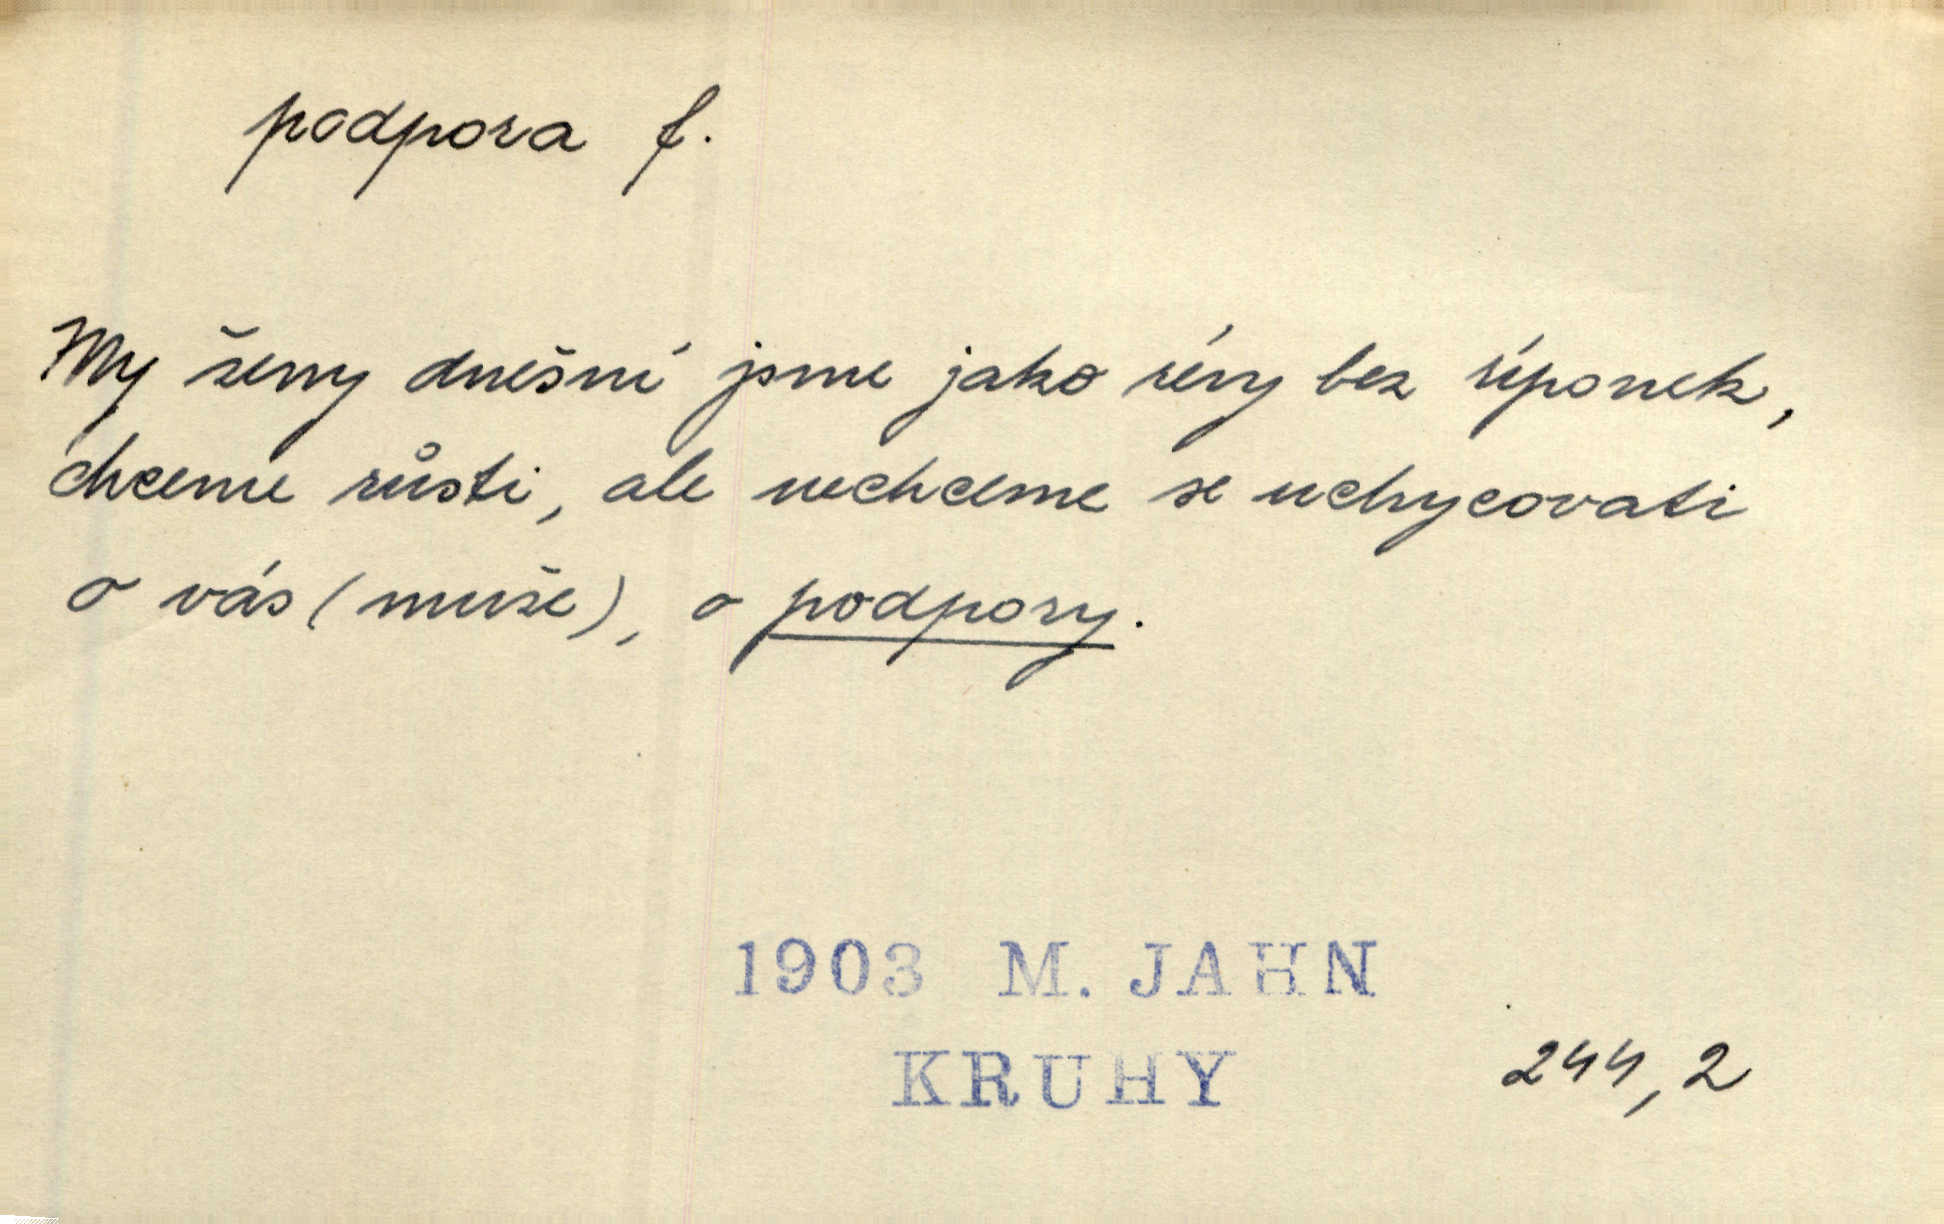 podpora f.
My ženy dnešní jsme jako révy bez réponek,
chceme růsti, ale nechceme se uchycovati
o vás (muže), o podpory.
1903 M. JAHN
KRUHY
244, 2